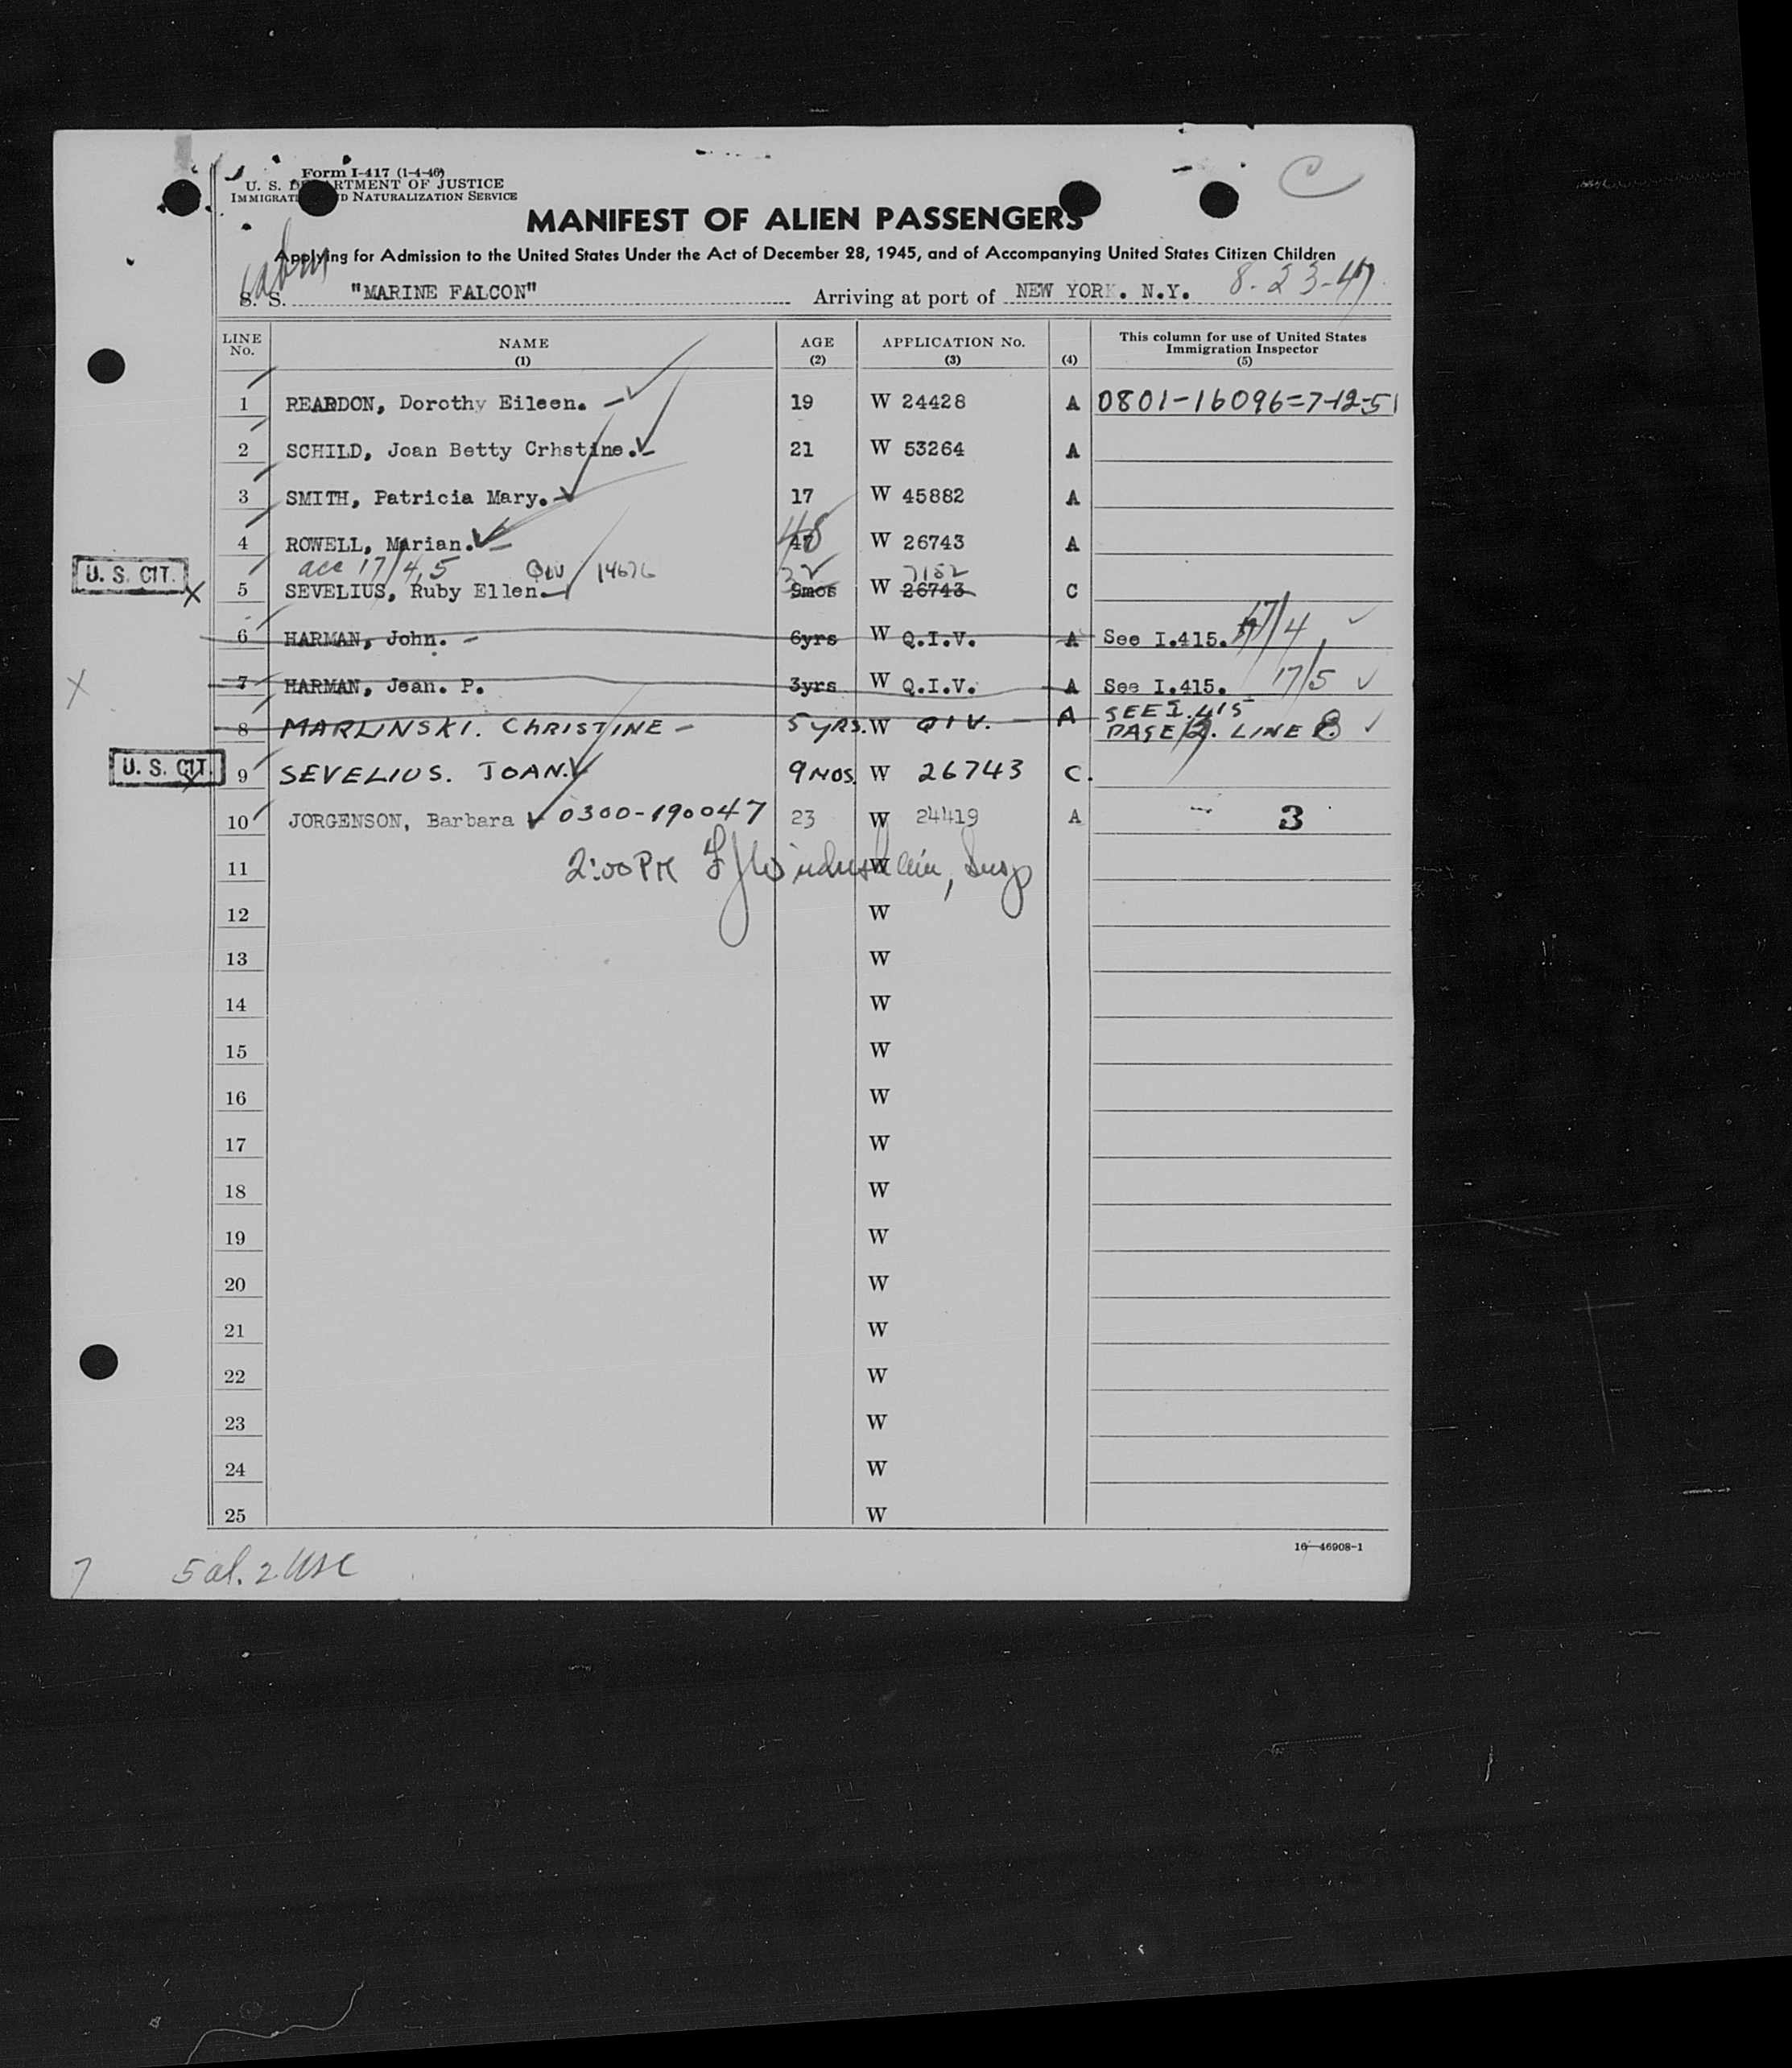 C
Form I-417 (1-4-46)
U. S. DEPARTMENT OF JUSTICE
IMMIGRATION AND NATURALIZATION SERVICE
MANIFEST OF ALIEN PASSENGERS
Applying for Admission to the United States Under the Act of December 28, 1945, and of Accompanying United States Citizen Children
Cabin
S. S. "MARINE FALCON" Arriving at port of NEW YORK. N.Y. 8-23-47
LINE No. NAME (1) AGE (2) APPLICATION No. (3) (4) This column for use of United States Immigration Inspector (5)
1 REARDON, Dorothy Eileen. 19 W 24428 A 0801-16096=7-12-51
2 SCHILD, Joan Betty Crhstine. 21 W 53264 A
3 SMITH, Patricia Mary. 17 W 45882 A
4 ROWELL, Marian. 47 48 W 26743 A
acc 17/4,5 QIV 14676 32 7152
U. S. CIT. X 5 SEVELIUS, Ruby Ellen. 9mos W 26743 C
6 HARMAN, John. - 6yrs W Q.I.V. A See I.415. 17/4
X 7 HARMAN, Jean. P. 3yrs W Q.I.V. A See I.415. 17/5
8 MARLINSKI. CHRISTINE - 5 YRS. W QIV. - A SEE I.415
PAGE 12. LINE 8
U. S. CIT. 9 SEVELIUS. JOAN. 9 MOS. W 26743 C.
10 JORGENSON, Barbara 0300-190047 23 W 24419 A 3
11 2:00 PM W Insp
12 W
13 W
14 W
15 W
16 W
17 W
18 W
19 W
20 W
21 W
22 W
23 W
24 W
25 W
16-46908-1
7 5 al. 2 USC